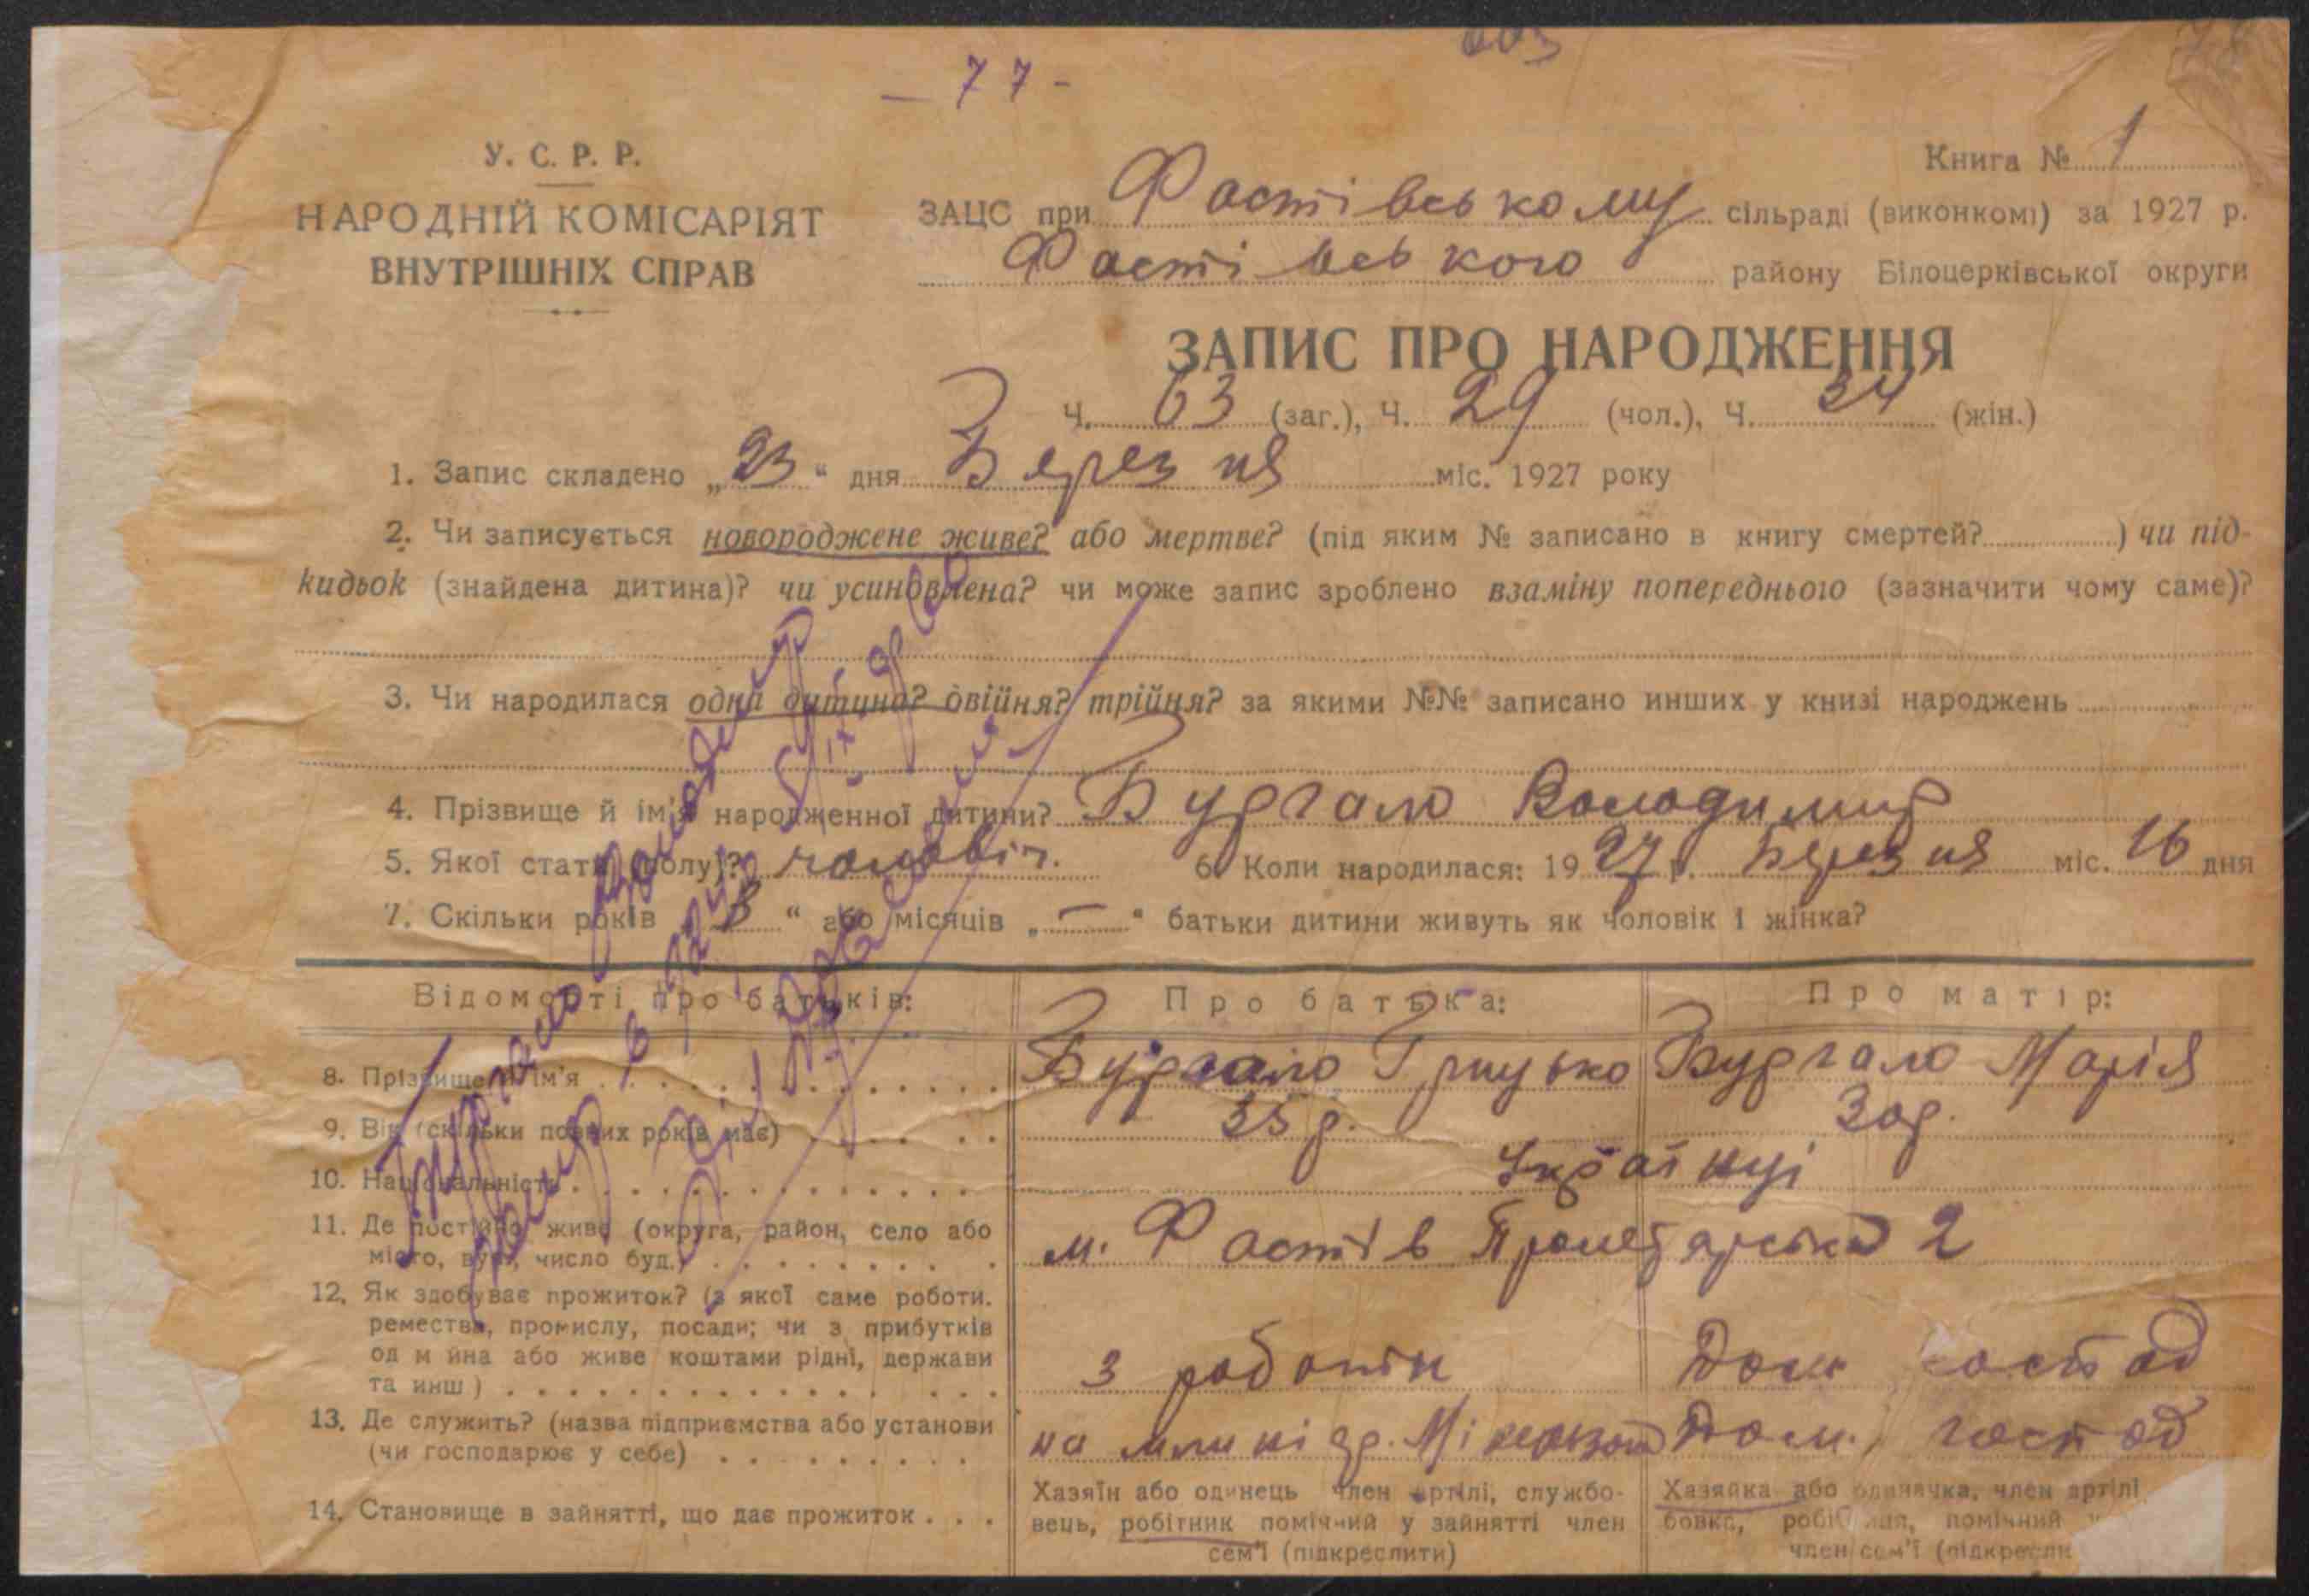 — 77 -
003
У. С. Р. Р.
НАРОДНІЙ КОМІСАРІЯТ
ВНУТРІШНІХ СПРАВ
Книга № 1
ЗАЦС при Фастівському сільраді (виконкомі) за 1927 р.
Фастівського району Білоцерківської округи
ЗАПИС ПРО НАРОДЖЕННЯ
Ч. 63 (заг.), Ч. 29 (чол.), Ч. 34 (жін.)
1. Запис складено „23“ дня Березня міс. 1927 року
2. Чи записується новороджене живе? або мертве? (під яким № записано в книгу смертей? ) чи під-
кидьок (знайдена дитина)? чи усиновлена? чи може запис зроблено взаміну попереднього (зазначити чому саме)?
3. Чи народилася одна дитина? двійня? трійня? за якими №№ записано инших у книзі народжень
4. Прізвище й ім'я народженної дитини? Бургало Володимир
5. Якої статі (полу)? чоловіч. 6. Коли народилася: 1927 р. Березня міс. 16 дня
7. Скільки років „8“ або місяців „—“ батьки дитини живуть як чоловік і жінка?
Відомості про батьків: Про батька: Про матір:
8. Прізвище й ім'я Бургало Грицько Бургало Марія
9. Вік (скільки повних років має) 35 р. 30 р.
10. Національність Українці
11. Де постійно живе (округа, район, село або
місто, вул., число буд.) м. Фастів Пролетарська 2
12. Як здобуває прожиток? (з якої саме роботи.
ремества, промислу, посади; чи з прибутків
од майна або живе коштами рідні, держави
та инш) З роботи Дом господ
13. Де служить? (назва підприємства або установи
(чи господарює у себе) на млині гр. Дом. господ
14. Становище в зайнятті, що дає прожиток . . .
Хазяїн або одинець член артілі, службо-
вець, робітник помічний у зайнятті член
сем'ї (підкреслити)
Хазяйка або одиначка, член артілі
бовка, робітниця, помічний у
член сем'ї (підкресли